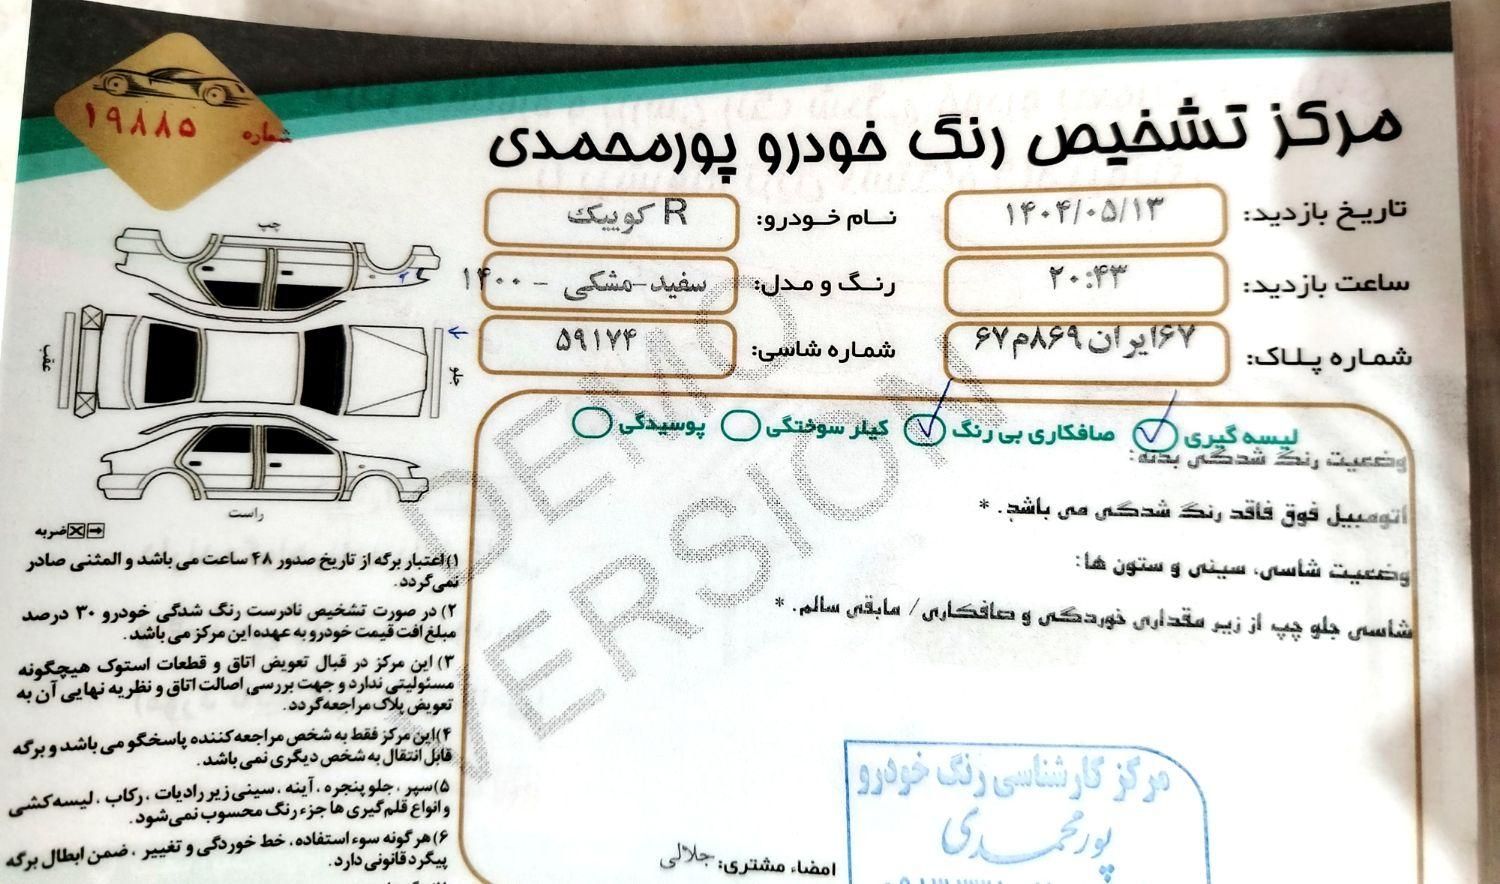 شماره ۱۹۸۸۵
مرکز تشخیص رنگ خودرو پورمحمدی
تاریخ بازدید: ۱۴۰۴/۰۵/۱۳
نام خودرو: کوییک R
ساعت بازدید: ۲۰:۴۳
رنگ و مدل: سفید-مشکی - ۱۴۰۰
شماره پلاک: ۶۷ایران ۸۶۹م۶۷
شماره شاسی: ۵۹۱۷۴
چپ
عقب
جلو
راست
ضربه
لیسه گیری صافکاری بی رنگ کیلر سوختگی پوسیدگی
وضعیت رنگ شدگی بدنه:
اتومبیل فوق فاقد رنگ شدگی می باشد. *
وضعیت شاسی، سینی و ستون ها:
شاسی جلو چپ از زیر مقداری خوردگی و صافکاری/ مابقی سالم. *
DEMO
VERSION
۱)اعتبار برگه از تاریخ صدور ۴۸ ساعت می باشد و المثنی صادر
نمی گردد.
۲) در صورت تشخیص نادرست رنگ شدگی خودرو ۳۰ درصد
مبلغ افت قیمت خودرو به عهده این مرکز می باشد.
۳) این مرکز در قبال تعویض اتاق و قطعات استوک هیچگونه
مسئولیتی ندارد و جهت بررسی اصالت اتاق و نظریه نهایی آن به
تعویض پلاک مراجعه گردد.
۴)این مرکز فقط به شخص مراجعه کننده پاسخگو می باشد و برگه
قابل انتقال به شخص دیگری نمی باشد.
۵)سپر، جلو پنجره، آینه، سینی زیر رادیات، رکاب، لیسه کشی
و انواع قلم گیری ها جزء رنگ محسوب نمی شود.
۶)هرگونه سوء استفاده، خط خوردگی و تغییر، ضمن ابطال برگه
پیگرد قانونی دارد.
امضاء مشتری: جلالی
مرکز کارشناسی رنگ خودرو
پورمحمدی